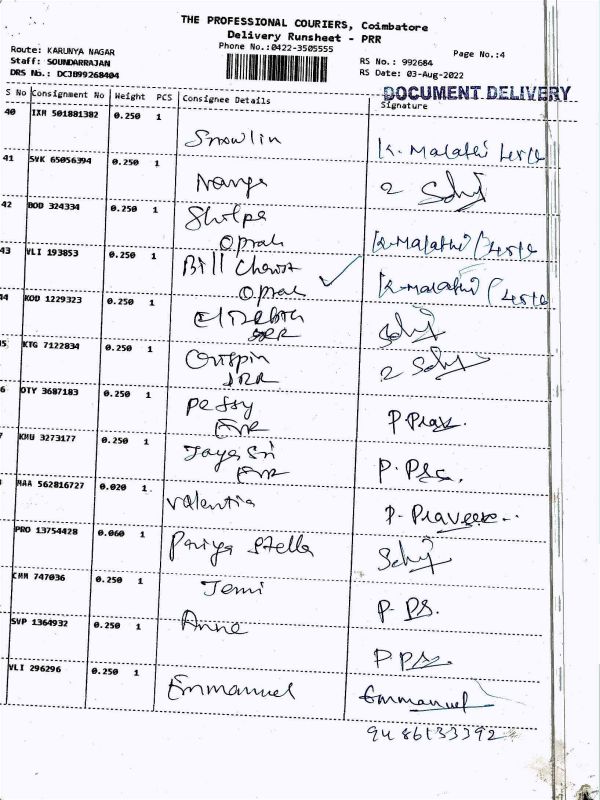 THE PROFESSIONAL COURIERS, Coimbatore
Delivery Runsheet - PRR
Phone No.:0422-3505555
Route: KARUNYA NAGAR
Staff: SOUNDARRAJAN
DRS No.: DCJB99268404
Page No.:4
RS No.: 992684
RS Date: 03-Aug-2022
DOCUMENT DELIVERY
S No Consignment No Weight PCS Consignee Details Signature
40 IXM 501881382 0.250 1 Snowlin K. Malathi
41 SVK 65056394 0.250 1 2
42 BOD 324334 0.250 1 Shilpa
K. Malathi
43 VLI 193853 0.250 1 Bill
K. Malathi
44 KOD 1229323 0.250 1
45 KTG 7122834 0.250 1 Crispin 2
6 OTY 3687183 0.250 1 Pessy
P. Prav.
7 KMU 3273177 0.250 1 Jaya Sri
MAA 562816727 0.020 1 Valentia P. Praveen
PRO 13754428 0.060 1 Pariya Stella
CHM 747036 0.250 1 Jemi
SVP 1364932 0.250 1 Anne
VLI 296296 0.250 1 Emmanuel Emmanuel
9486133392